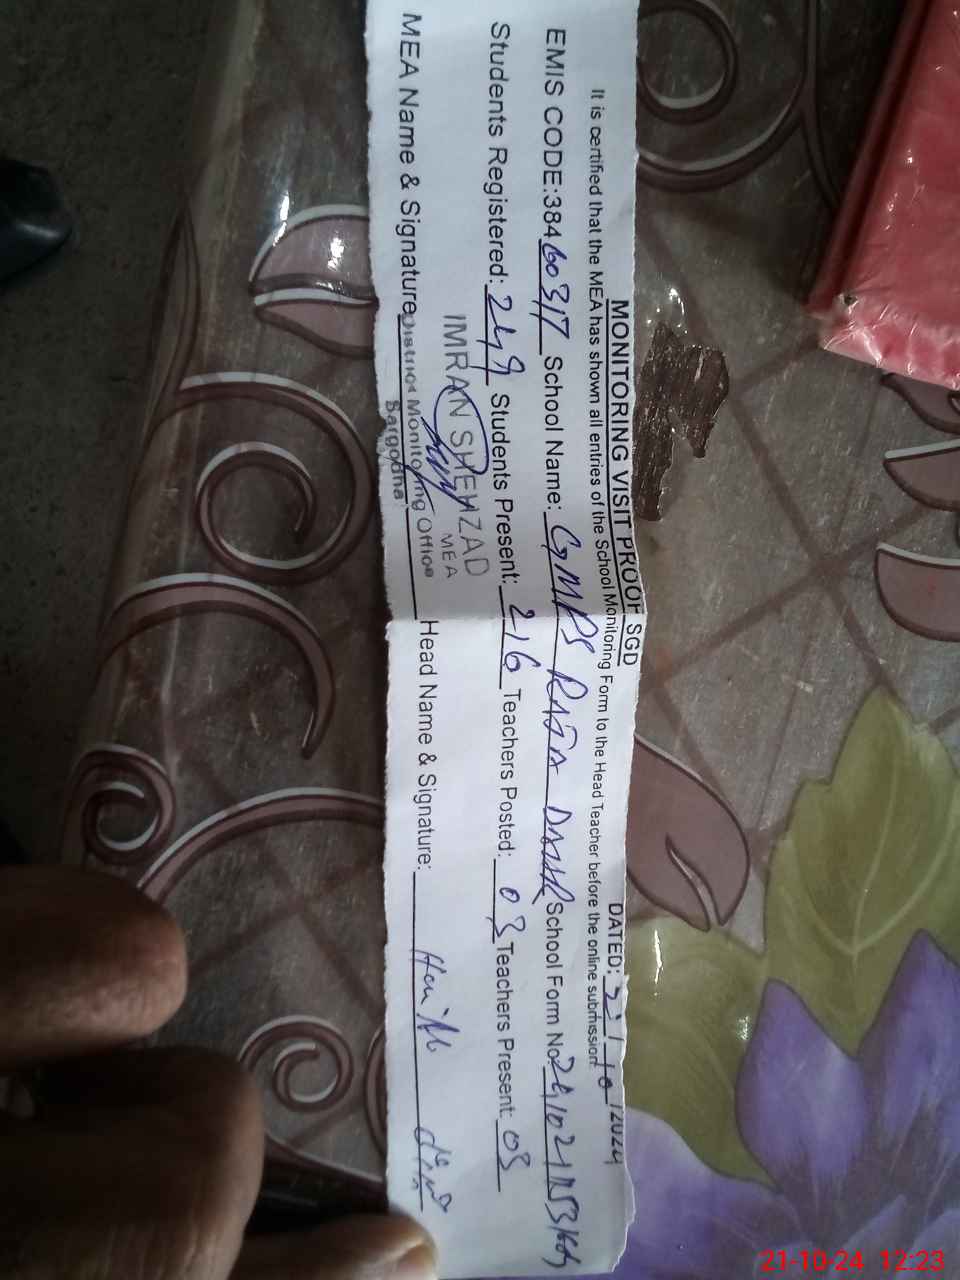 MONITORING VISIT PROOF SGD DATED: 21/10/2024
It is certified that the MEA has shown all entries of the School Monitoring Form to the Head Teacher before the online submission.
EMIS CODE:38460317 School Name: GMPS RAJA School Form No:
Students Registered: 249 Students Present: 216 Teachers Posted: 03 Teachers Present: 03
IMRAN SHEHZAD
MEA
MEA Name & Signature: District Monitoring Office Head Name & Signature:
Sargodha
21-10-24 12:23